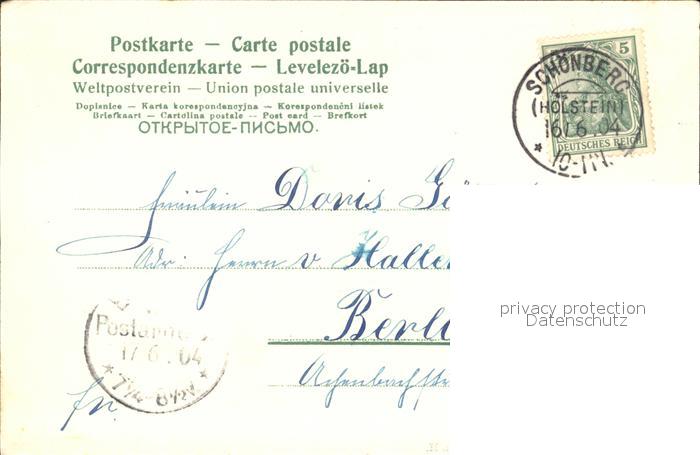 Postkarte — Carte postale
Correspondenzkarte — Levelező-Lap
Weltpostverein — Union postale universelle
Dopisnice — Karta korespondencyjna — Korespondenční lístek
Briefkaart — Cartolina postale — Post card — Brefkort
ОТКРЫТОЕ-ПИСЬМО.
5
DEUTSCHES REICH
SCHÖNBERG
(HOLSTEIN)
16/6.04
Fräulein Doris
Adr: Herrn v Halle
Berl
Achenbachstr
privacy protection
Datenschutz
17 6.04
7¼-8½V.
fr.